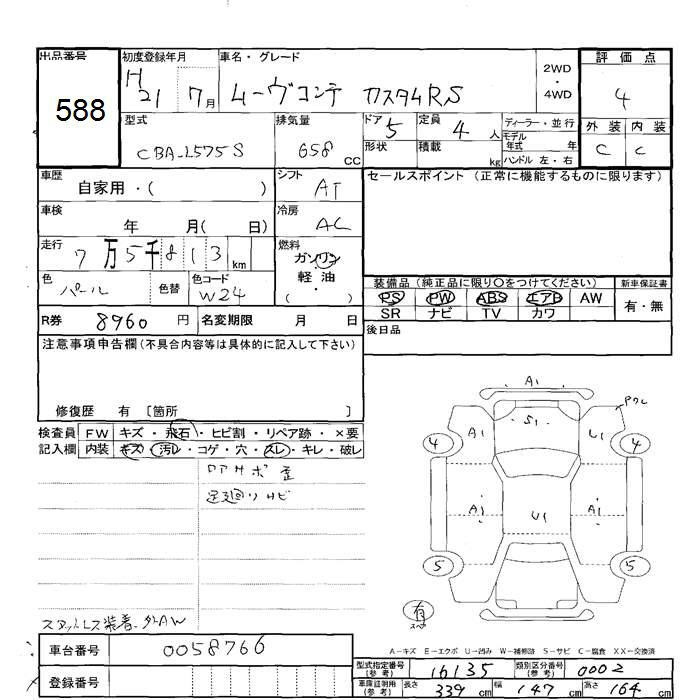 出品番号 初度登録年月 車名・グレード 2WD・4WD 評価点
588 H21 7月 ムーヴコンテ カスタムRS 4
型式 排気量 ドア 5 定員 4人 ディーラー・並行 外装 内装
CBA-L575S 658 CC 形状 積載 kg モデル年式 年 C C
ハンドル 左・右
車歴 自家用・( ) シフト AT セールスポイント(正常に機能するものに限ります)
車検 年 月( 日) 冷房 AC
走行 7万5千813 km 燃料 ガソリン 軽油・( )
色 パール 色替 色コード W24 装備品(純正品に限り〇をつけてください) 新車保証書
PS PW ABS エアB AW 有・無
SR ナビ TV カワ
R券 8960円 名変期限 月 日 後日品
注意事項申告欄(不具合内容等は具体的に記入して下さい)
修復歴 有 〔箇所 〕
検査員記入欄 FW キズ・飛石・ヒビ割・リペア跡・×要
内装 キズ・汚レ・コゲ・穴・スレ・キレ・破レ
足廻りサビ
A1
S1
A1 U1
4 4
A1 U1 A1
5 5
有
スタットレス装着 外AW
A-キズ E-エクボ U-凹み W-補修跡 S-サビ C-腐食 XX-交換済
車台番号 0058766 型式指定番号(参考) 16135 類別区分番号(参考) 0002
登録番号 車庫証明用(参考) 長さ 339cm 幅 147cm 高さ 164cm